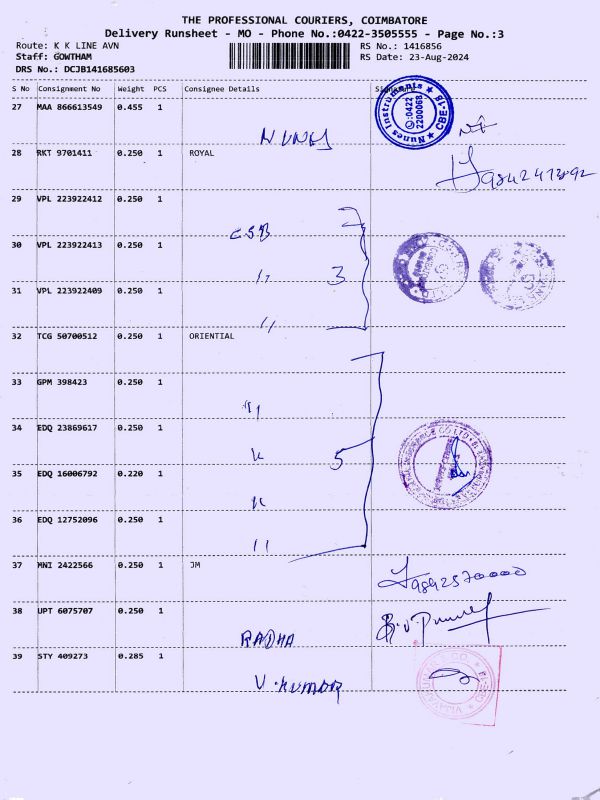 THE PROFESSIONAL COURIERS, COIMBATORE
Delivery Runsheet - MO - Phone No.:0422-3505555 - Page No.:3
Route: K K LINE AVN RS No.: 1416856
Staff: GOWTHAM RS Date: 23-Aug-2024
DRS No.: DCJB141685603
S No Consignment No Weight PCS Consignee Details
27 MAA 866613549 0.455 1
Nunes Instruments CBE-18
0422
2200068
NUNES
28 RKT 9701411 0.250 1 ROYAL
29 VPL 223922412 0.250 1
CSB
30 VPL 223922413 0.250 1
" 3
31 VPL 223922409 0.250 1
"
32 TCG 50700512 0.250 1 ORIENTIAL
33 GPM 398423 0.250 1
"
34 EDQ 23869617 0.250 1
" 5
35 EDQ 16006792 0.220 1
"
36 EDQ 12752096 0.250 1
"
37 MNI 2422566 0.250 1 JM
9842570000
38 UPT 6075707 0.250 1
RADHA
39 STY 409273 0.285 1
V.KUMAR